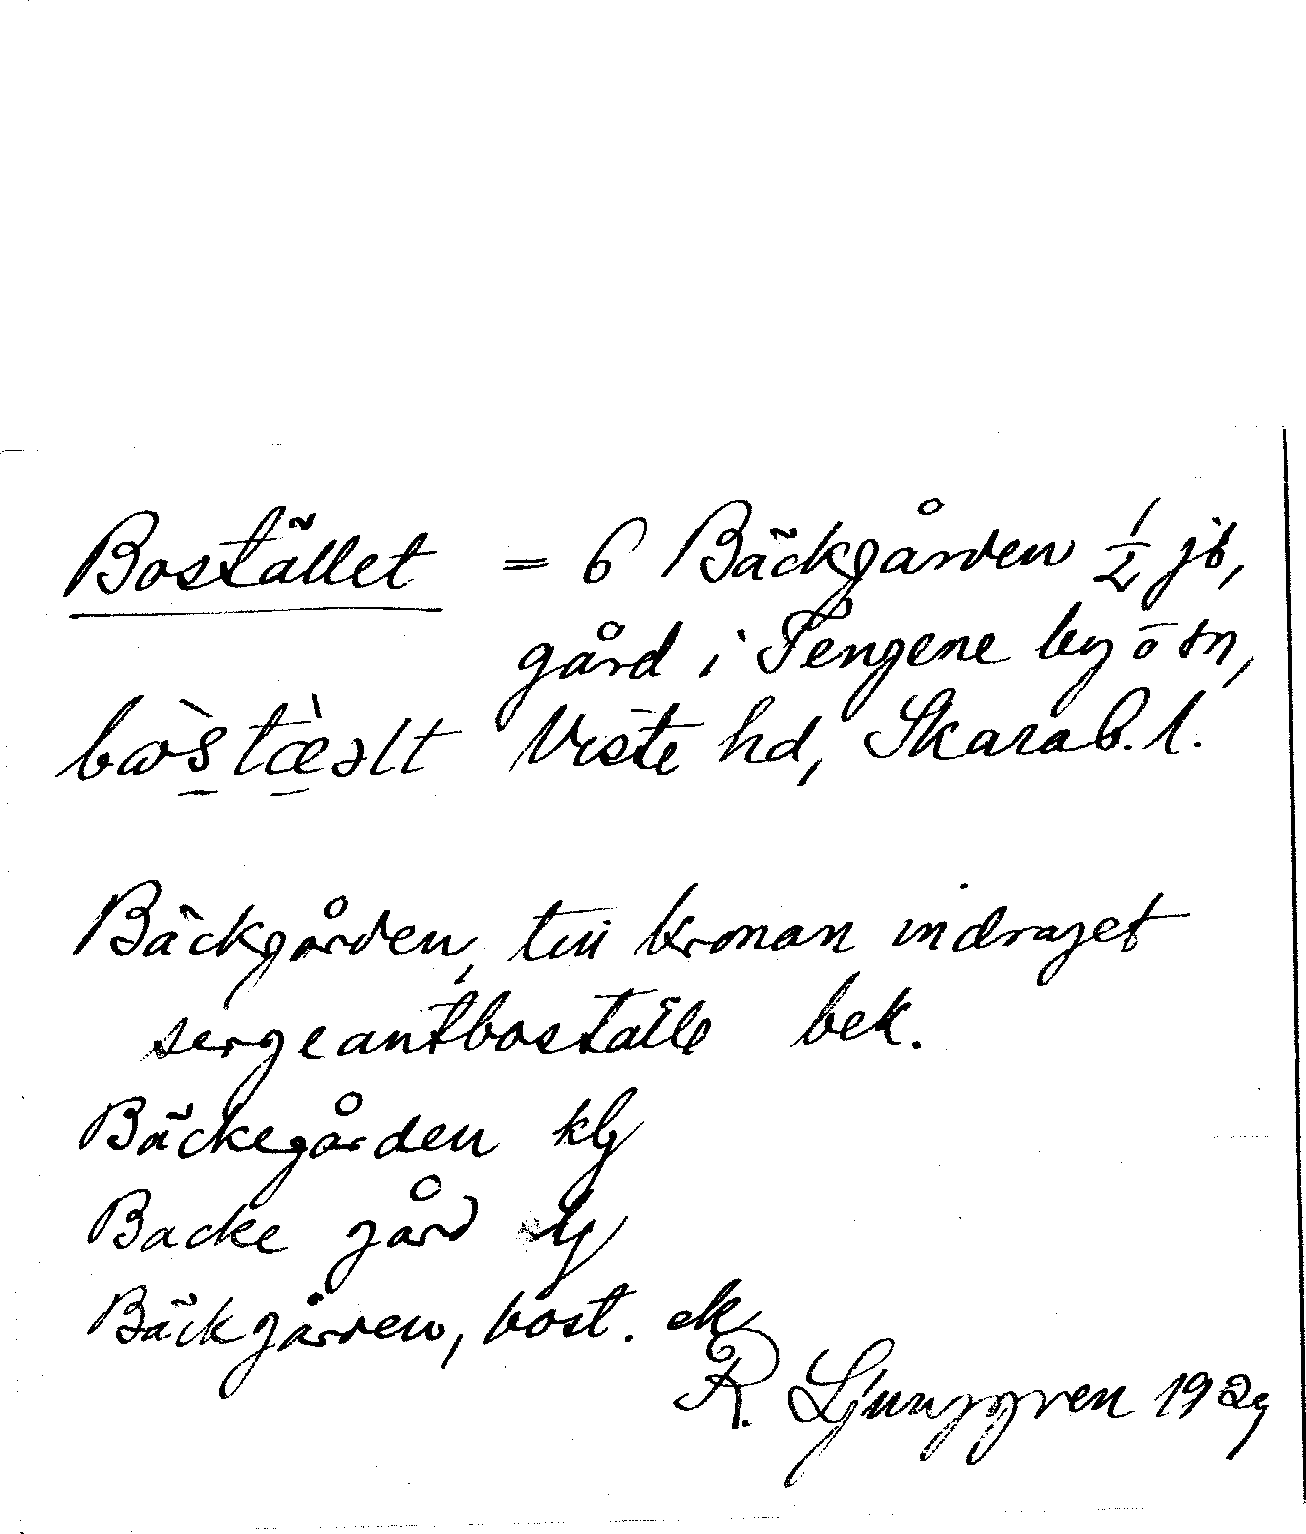 Bostället = 6 Bäckgården ½ jb,
gård i Tengene by o sn,
Viste hd, Skarab. l.
Bäckgården, till kronan indraget
sergeantboställe bek.
Bäckegården
Backe gård
Bäckgården, bost. ek
R. Ljunggren 1929